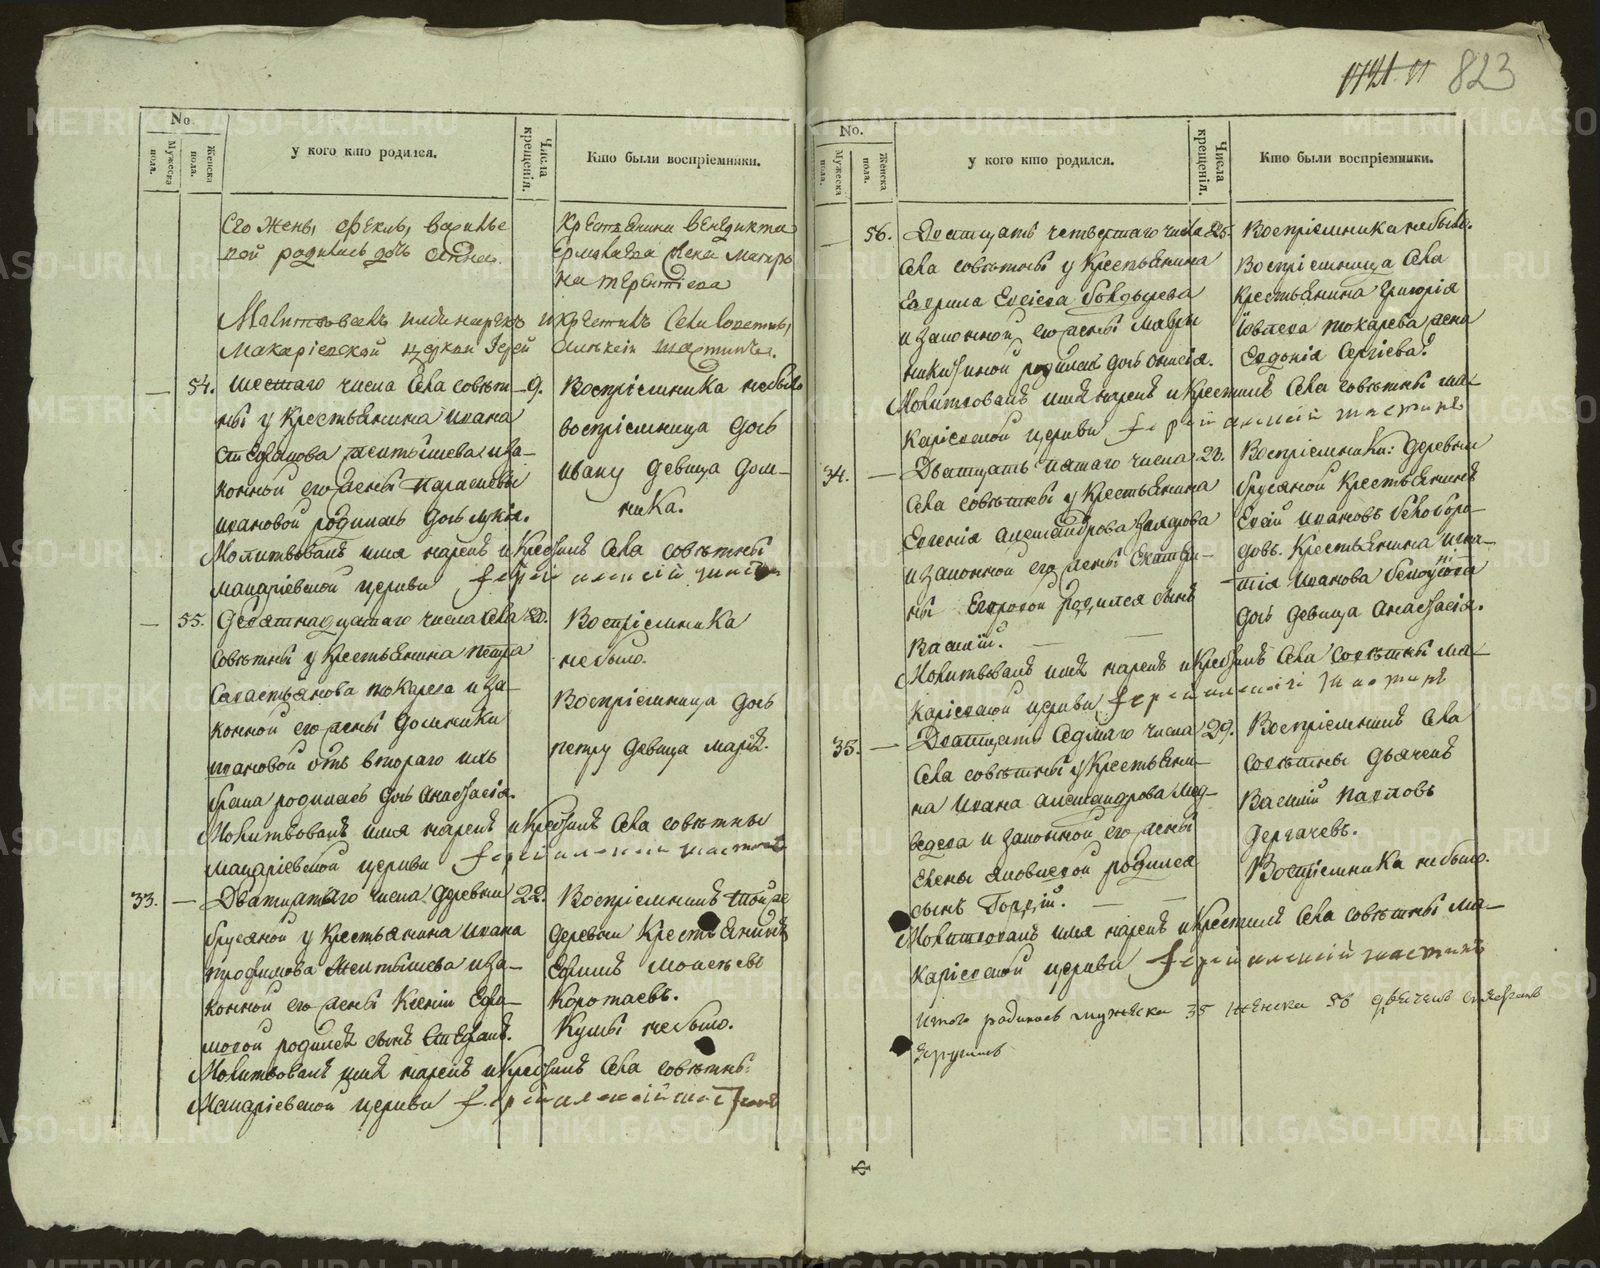 823
No.
Мужеска пола.
Женска пола.
у кого кто родился.
Числа крещенія.
Кто были воспріемники.
Его жены, Ѳеклы, Василье
вой родилась дочь Анна.
Крестьянина Венедикта
Ермолаева жена Матро
на Терентіева
Молитвовалъ имя нарекъ и Крестилъ Села Советны,
Макаріевской церкви Іерей Алексій
54. шестаго числа Села совѣт- 9.
ны у Крестьянина Ивана
Стефанова и за-
конной его жены Парасковьи
Ивановой родилась дочь
Воспріемника небыло
воспріемница дочь
Ивану девица Дом-
ника.
Молитвовалъ имя нарекъ и Крестилъ Села совѣтны
макаріевской церкви Іерей алексій
55. Девятнадцатаго числа Села 20.
Совѣтны у Крестьянина Петра
Савастьянова токарева и за-
конной его жены Домники
Ивановой отъ втораго ихъ
брака родилась дочь Анастасія.
Воспріемника
небыло.
Воспріемница дочь
петру девица марія.
Молитвовалъ имя нарекъ и Крестилъ Села совѣтны
макаріевской церкви Іерей алексій
33. Дватцатаго числа деревни 22.
брусяной у Крестьянина Ивана
трофимова и за-
конной его жены Ксеніи Ефи-
мовой родился сынъ Стефанъ.
Воспріемникъ той же
деревни Крестьянинъ
Ефимъ Моисѣевъ
Коротаевъ.
Кумы небыло.
Молитвовалъ имя нарекъ и Крестилъ Села совѣтны
Макаріевской церкви Іерей алексій
No.
Мужеска пола.
Женска пола.
у кого кто родился.
Числа крещенія.
Кто были воспріемники.
56. Дватцать четвертаго числа 25.
Села совѣтны у Крестьянина
Гаврила
и законной его жены Мавры
никитиной родилась дочь
Воспріемника небыло.
Воспріемница Села
Крестьянина Григорія
Іовлева токарева жена
Евдокія Сергіева.
Молитвовалъ имя нарекъ и Крестилъ Села совѣтны ма-
каріевской церкви Іерей алексій
34. Дватцать пятаго числа 28.
Села совѣтны у Крестьянина
Евгенія александрова
и законной его жены Екатери-
ны Егоровой родился сынъ
Василій.
Воспріемники: деревни
брусяной Крестьянинъ
Ивановъ белоборо-
довъ. Крестьянина игна-
тія Иванова
дочь девица анастасія.
Молитвовалъ имя нарекъ и Крестилъ Села совѣтны ма-
каріевской церкви Іерей алексій
35. Дватцать седмаго числа 29.
Села совѣтны у Крестьяни-
на Ивана александрова мед-
ведева и законной его жены
Елены яковлевой родился
сынъ Гордій.
Воспріемникъ Села
совѣтны дьячекъ
Василій Павловъ
дергачевъ.
Воспріемника небыло.
Молитвовалъ имя нарекъ и Крестилъ Села совѣтны ма-
каріевской церкви Іерей алексій
итого родилось мужеска 35 женска 56
METRIKI.GASO-URAL.RU